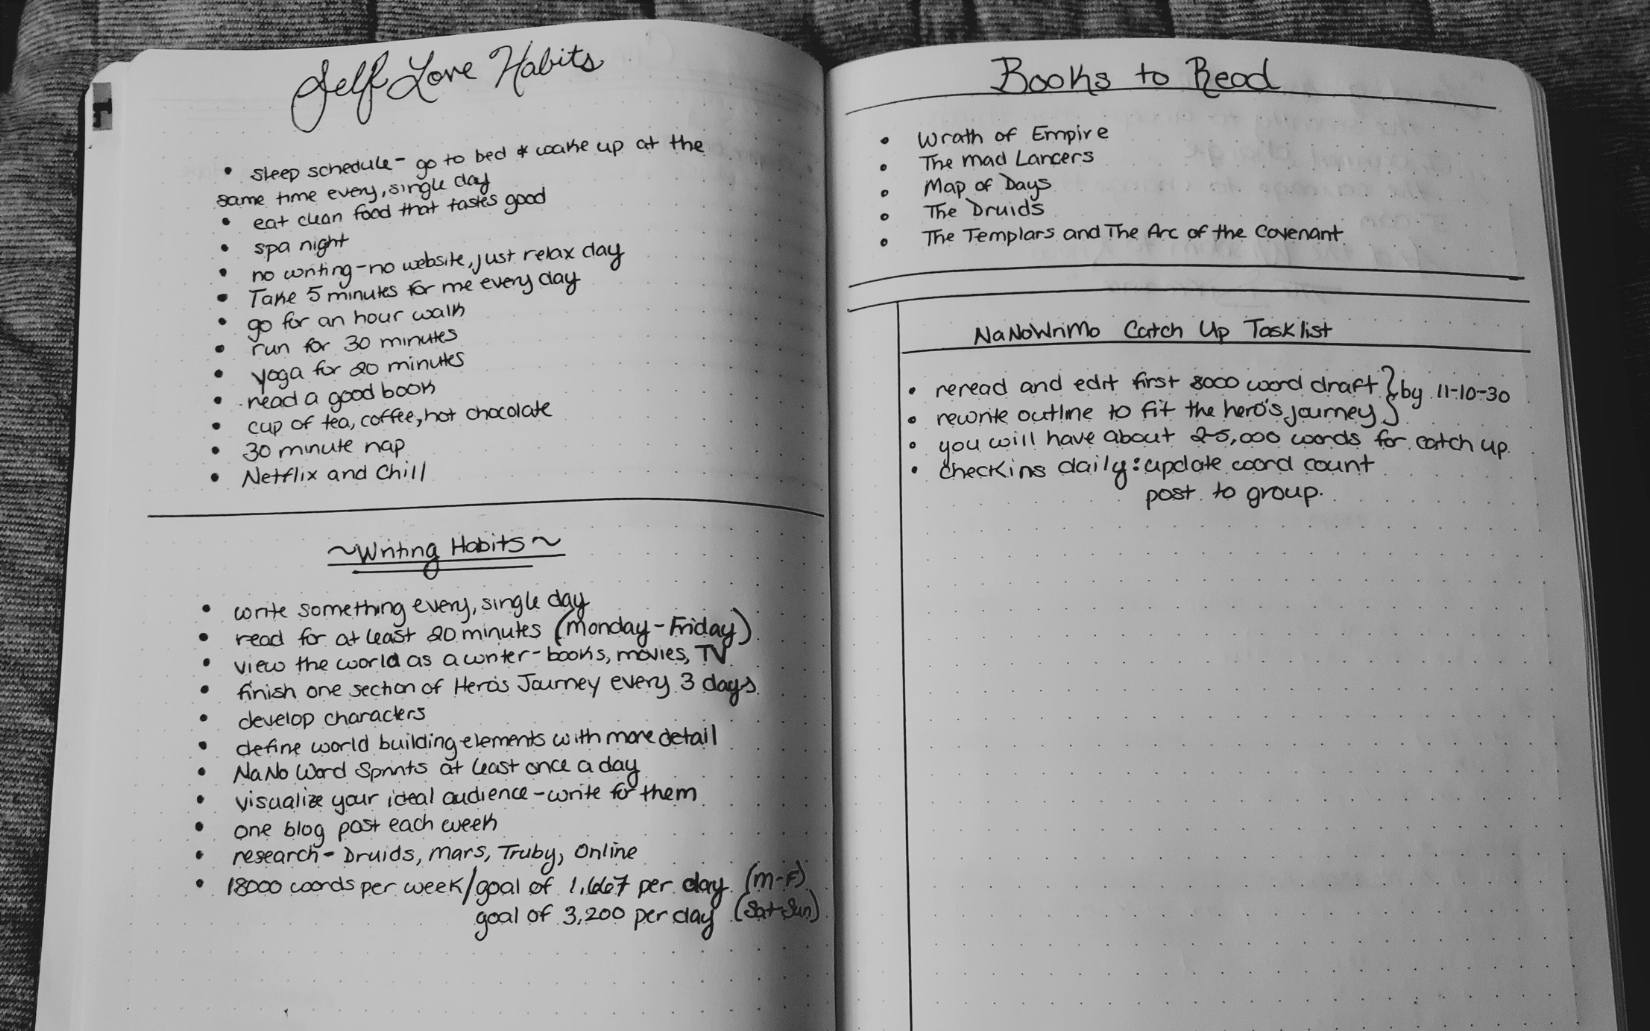 Self Love Habits
• sleep schedule - go to bed & wake up at the
same time every, single day
• eat clean food that tastes good
• spa night
• no writing - no website, just relax day
• Take 5 minutes for me every day
• go for an hour walk
• run for 30 minutes
• yoga for 20 minutes
• read a good book
• cup of tea, coffee, hot chocolate
• 30 minute nap
• Netflix and Chill
~Writing Habits~
• write something every, single day
• read for at least 20 minutes (Monday - Friday)
• view the world as a writer - books, movies, TV
• finish one section of Hero's Journey every 3 days
• develop characters
• define world building elements with more detail
• NaNo Word Sprints at least once a day
• visualize your ideal audience - write for them
• one blog post each week
• research - Druids, Mars, Truby, Online
• 18000 words per week / goal of 1,667 per day (M-F)
goal of 3,200 per day (Sat-Sun)
Books to Read
• Wrath of Empire
• The Mad Lancers
• Map of Days
• The Druids
• The Templars and The Arc of the Covenant
NaNoWriMo Catch Up Tasklist
• reread and edit first 8000 word draft } by 11-10-30
• rewrite outline to fit the hero's journey
• you will have about 25,000 words for catch up
• checkins daily: update word count
post to group.